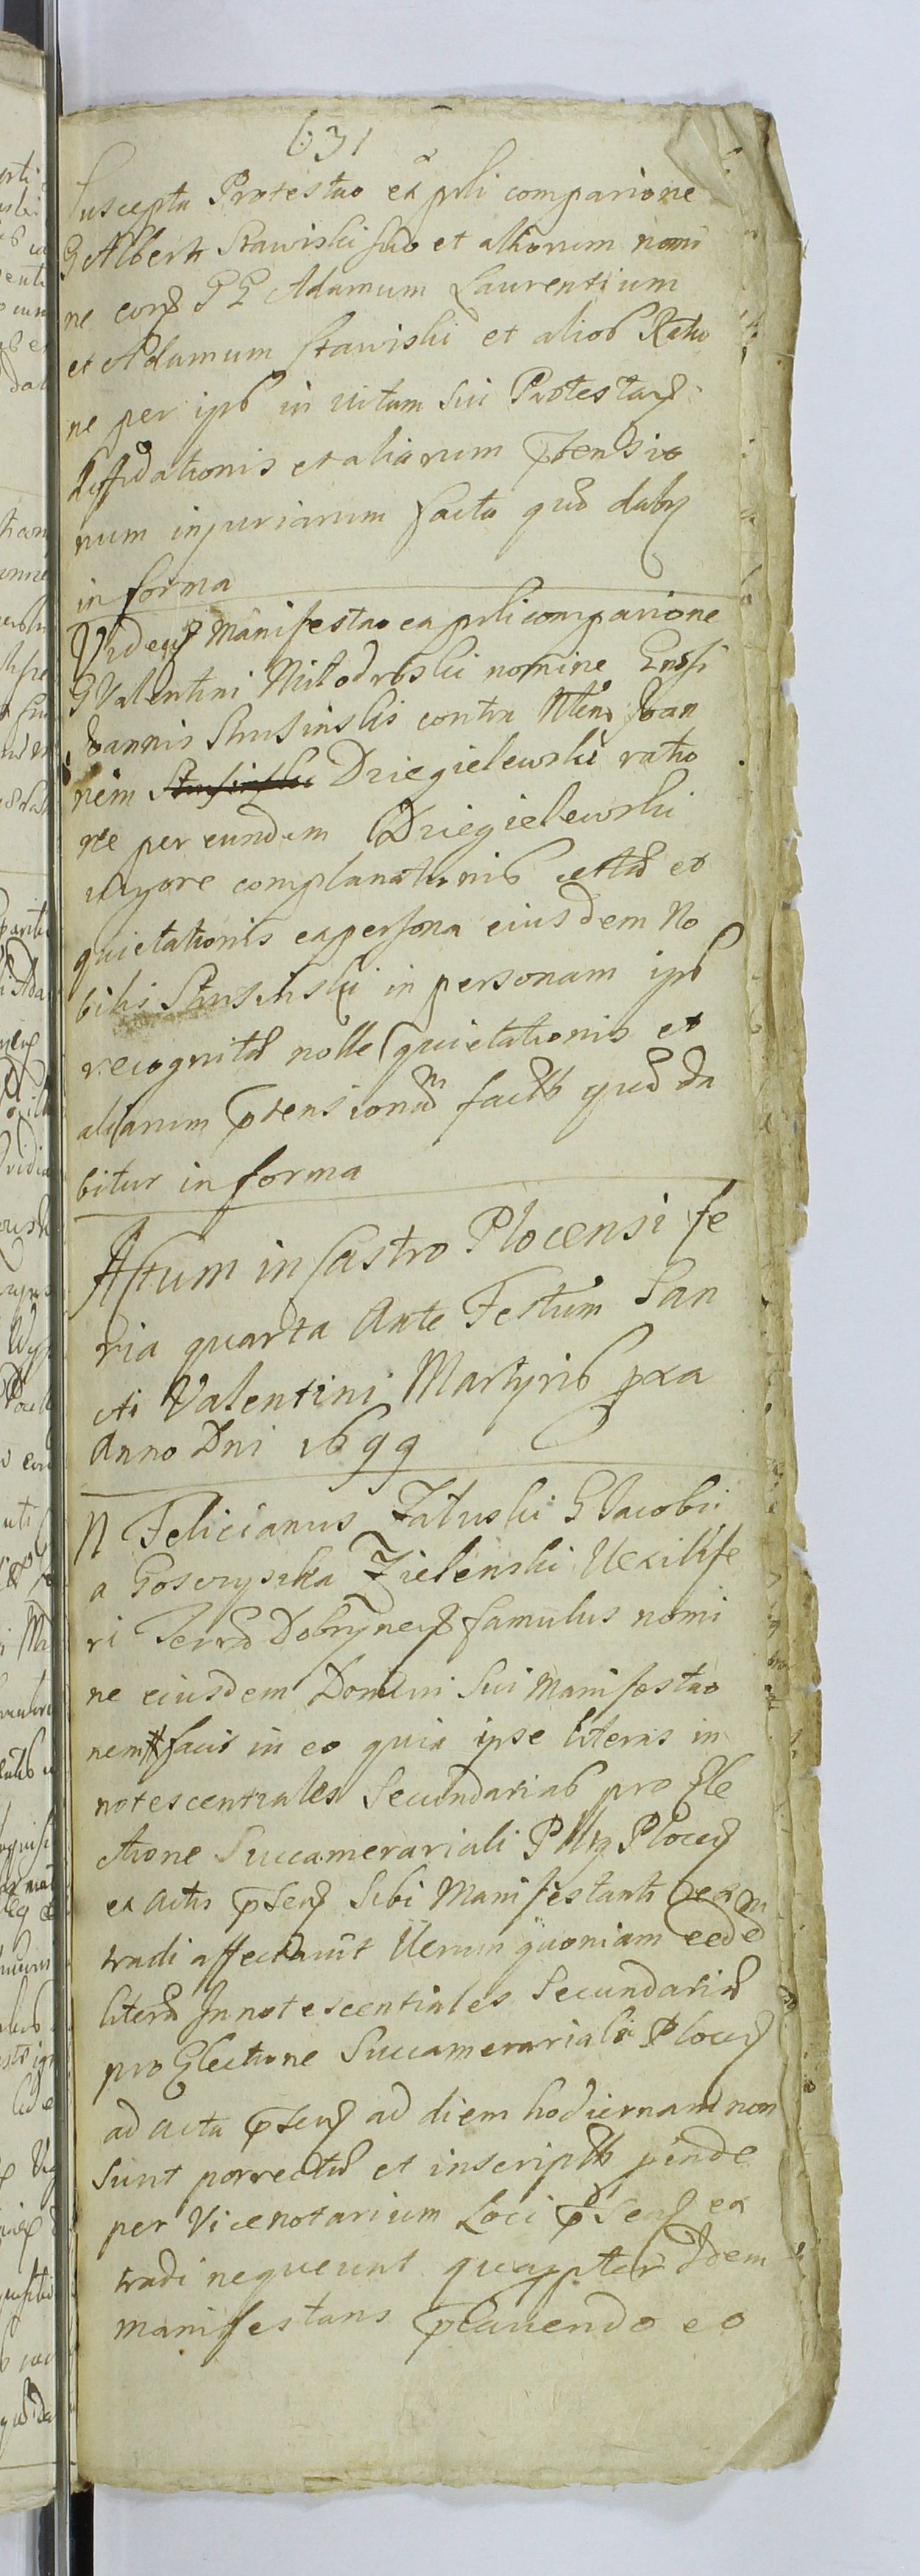 631
Suscepta Protestao ex prli comparione
G Alberti Stawiski suo et aliorum nomi
ne cor͡ꝭ GG Adamum Laurentium
et Adamum Stawiski et alios Ratio
ne per ipſ in vitam sui Protestan͡ꝭ
diffidationis et aliarum p̄tensio
num injuriarum facta quæ dabr͡ꝭ
in forma
Videns͡ꝭ Manifestao ex prli comparione
G Valentini Milodrbski nomine Gnsi
Joannis Strusinskis contra Nlem Joan
nem Strusinski Dziegielewski ratio
ne per eundem Dziegielewski
vigore complanationis certæ et
quietationis ex persona eiusdem No
bilis Strusinski in personam ips
recognitæ nolle quietationis et
aliarum p̄tensionum factæ quæ da
bitur in forma
Actum in Castro Plocensi fe
ria quarta Ante Festum San
cti Valentini Martyris pxa
Anno Dni 1699
N Felicianus Zatuski G Jacobi
a Goscryscha Zielenski Vexillife
ri Terræ Dobrynen͡ꝭ famulus nomi
ne eiusdem Domini Sui Manifestao
nem facit in eo quia ipse literas in
notescentiales Secundarias pro Ele
ctione Succamerariali Pltus Plocen͡ꝭ
ex Actis p̄sen͡ꝭ sibi Manifestanti ex
tradi affectavit Verum quoniam eædem
literæ Innotescentiales Secundariæ
pro Electione Succamerariali Plocen͡ꝭ
ad acta p̄sen͡ꝭ ad diem hodiernam non
sunt porrectæ et inscriptæ pinde
per Vicenotarium Loci p̄sen͡ꝭ ex
tradi nequeunt quappter Idem
manifestans p̄cauendo eo